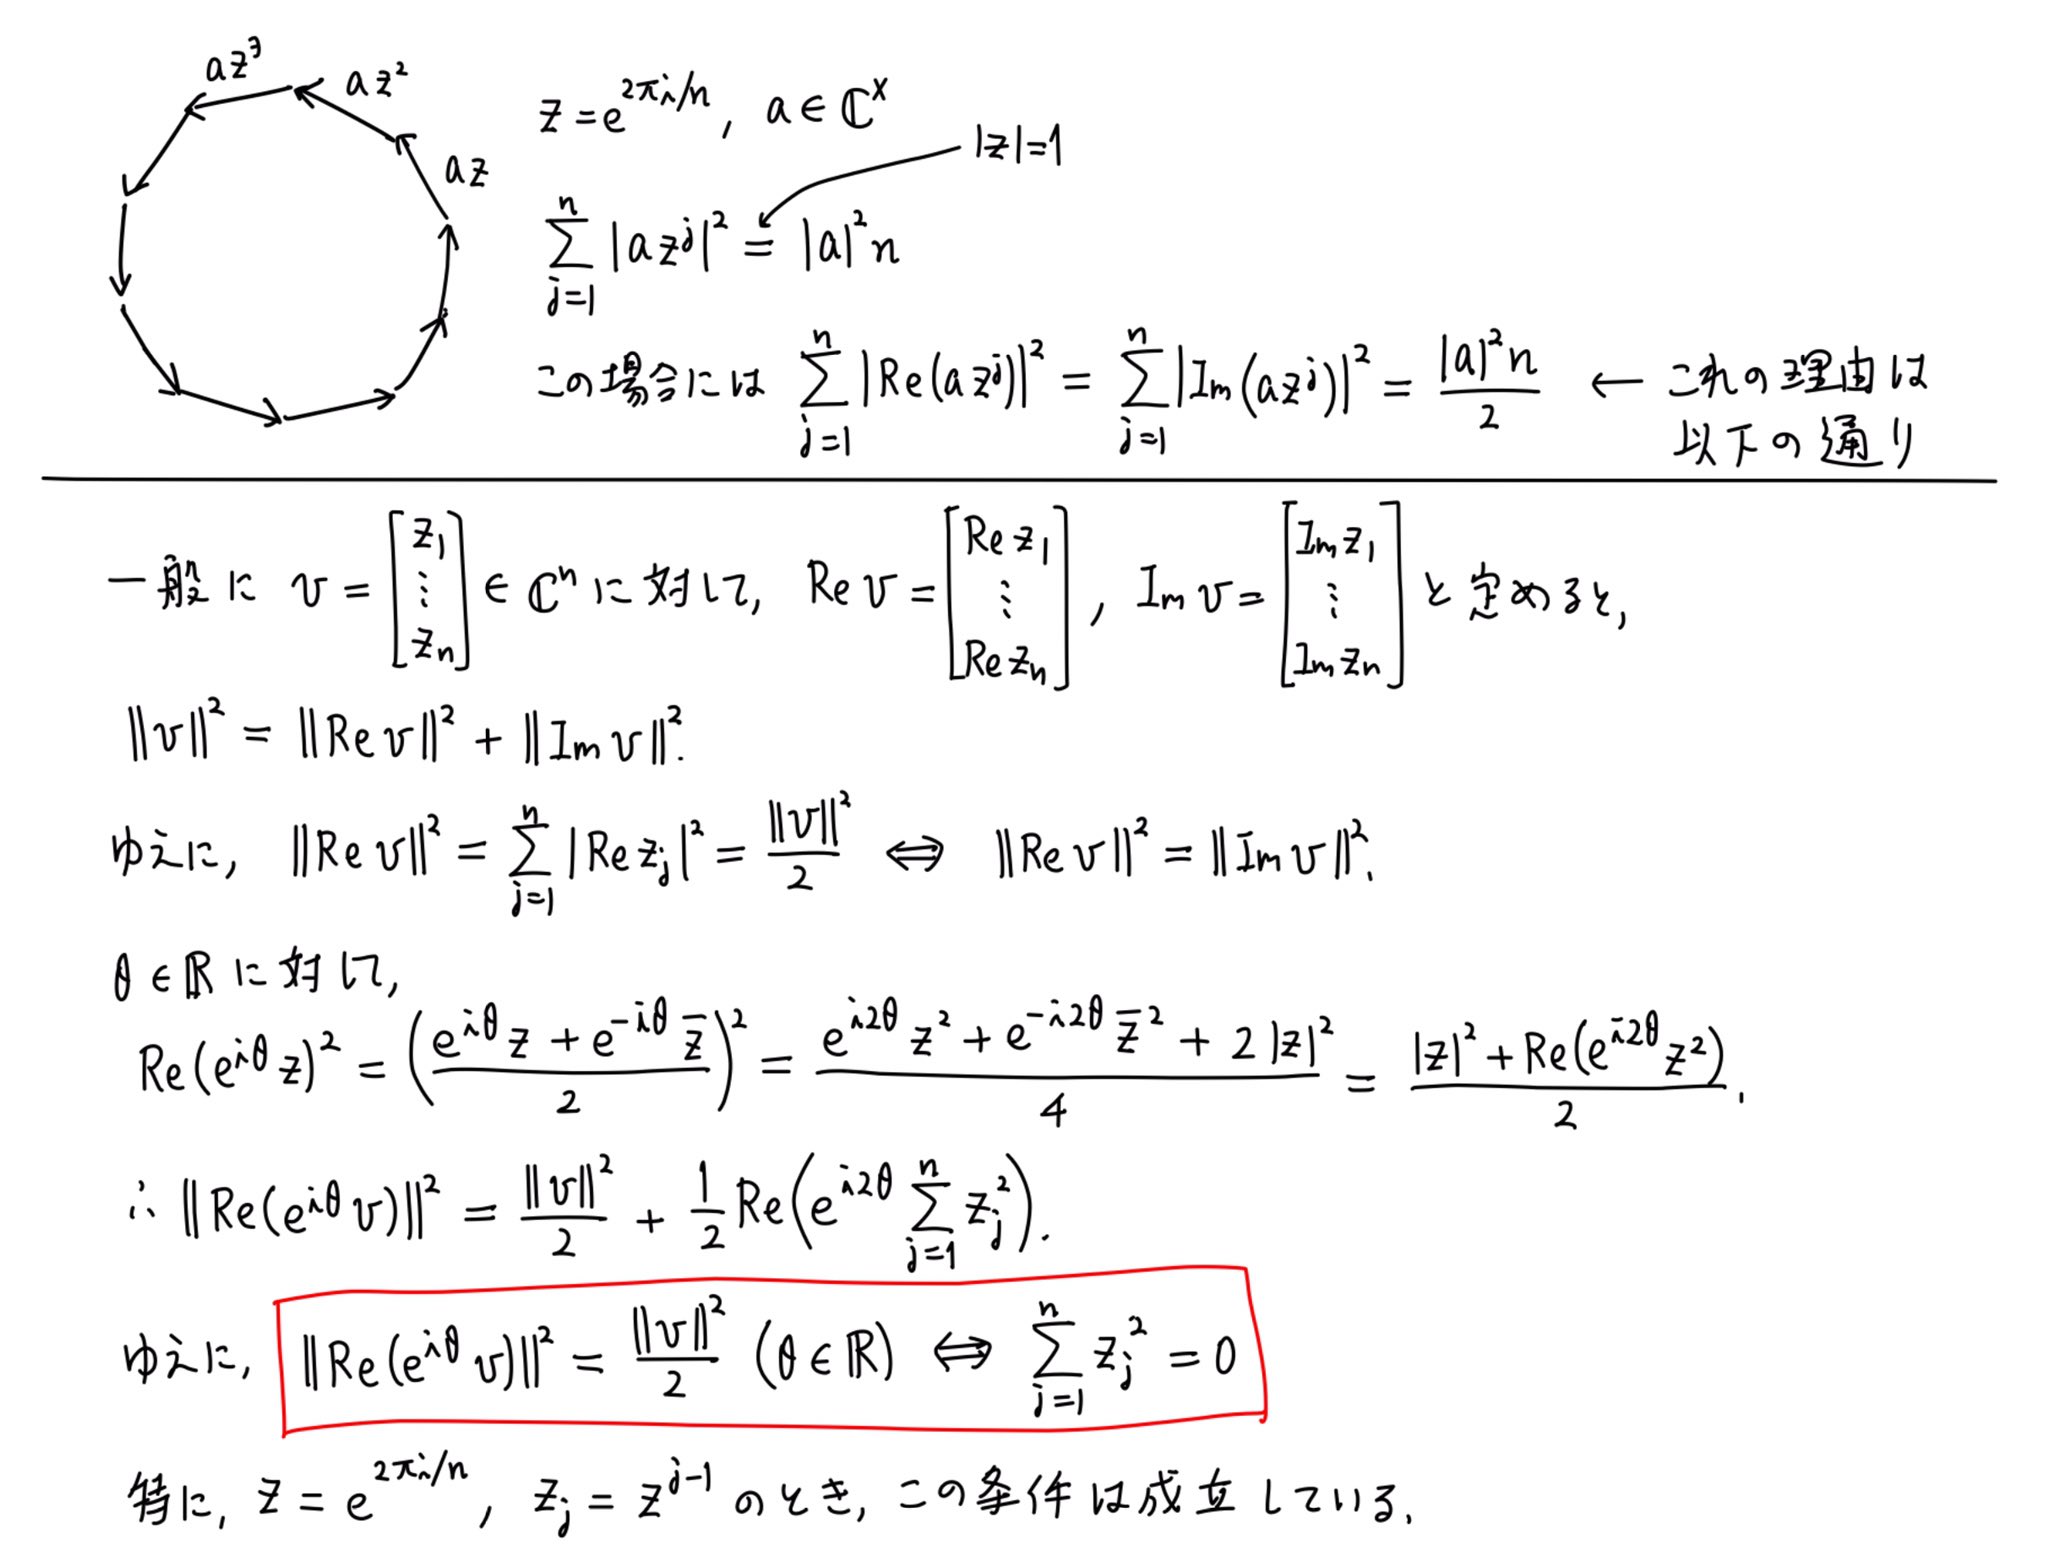 az³ az² az
z = e^{2πi/n}, a ∈ ℂ^×
|z|=1
∑_{j=1}^{n} |az^j|² = |a|²n
この場合には ∑_{j=1}^{n} |Re(az^j)|² = ∑_{j=1}^{n} |Im(az^j)|² = |a|²n/2 ← これの理由は
以下の通り
一般に v = [z₁ ⋮ zₙ] ∈ ℂⁿ に対して, Re v = [Re z₁ ⋮ Re zₙ], Im v = [Im z₁ ⋮ Im zₙ] と定めると,
‖v‖² = ‖Re v‖² + ‖Im v‖².
ゆえに, ‖Re v‖² = ∑_{j=1}^{n} |Re z_j|² = ‖v‖²/2 ⇔ ‖Re v‖² = ‖Im v‖².
θ ∈ ℝ に対して,
Re(e^{iθ}z)² = ((e^{iθ}z + e^{-iθ}z̄)/2)² = (e^{i2θ}z² + e^{-i2θ}z̄² + 2|z|²)/4 = (|z|² + Re(e^{i2θ}z²))/2.
∴ ‖Re(e^{iθ}v)‖² = ‖v‖²/2 + 1/2 Re(e^{i2θ} ∑_{j=1}^{n} z_j²).
ゆえに, ‖Re(e^{iθ}v)‖² = ‖v‖²/2 (θ ∈ ℝ) ⇔ ∑_{j=1}^{n} z_j² = 0
特に, z = e^{2πi/n}, z_j = z^{j-1} のとき, この条件は成立している.